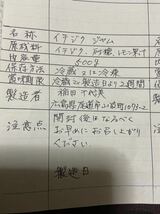 名称 イチジク ジャム
原材料 イチジク、砂糖、レモン果汁
内容量 500g
保存方法 冷蔵又は冷凍
賞味期限 冷蔵で製造日より2週間
製造者 稲田千代美
広島県尾道市
注意点 開封後はなるべく
お早めにお召し上がり
ください
製造日